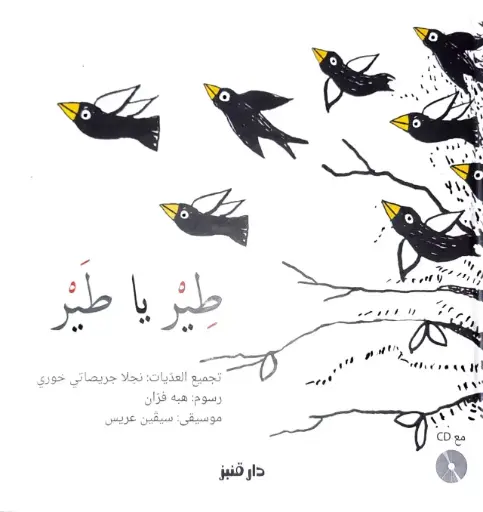 طِيرْ يا طَيْر
تجميع العدّيات: نجلا جريصاتي خوري
رسوم: هبه فرّان
موسيقى: سيڤين عريس
مع CD
دار قنبز